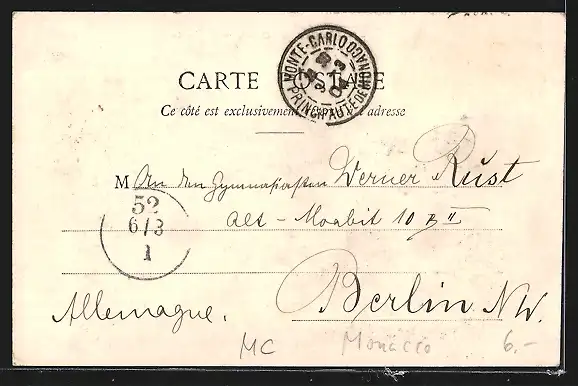 MONTE-CARLO
PRINCIPAUTÉ DE MONACO
CARTE POSTALE
Ce côté est exclusivement réservé à l'adresse
M An den Gymnasiasten Werner Rust
52
6/3
1
Alt-Moabit 10 B II
Allemagne.
Berlin NW.
MC Monacco 6.-